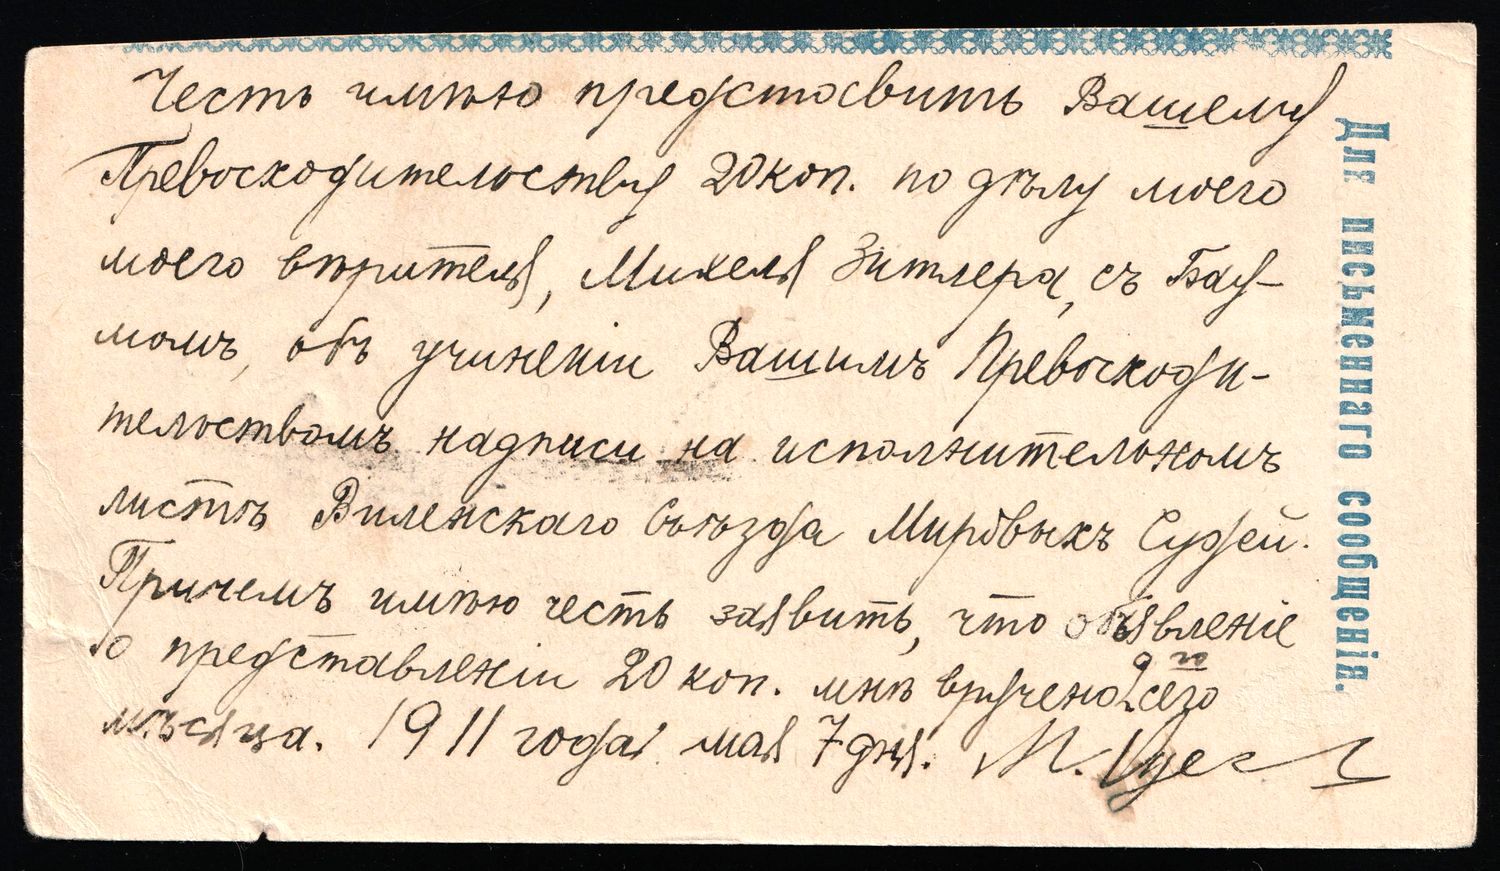 Честь имѣю представить Вашему
Превосходительству 20 коп. по дѣлу моего
моего вѣрителя, Михеля Зитлера, съ Бау-
момъ, объ учиненіи Вашимъ Превосходи-
тельствомъ надписи на исполнительномъ
листѣ Виленскаго Съѣзда Мировыхъ Судей.
Причемъ имѣю честь заявить, что объявленіе
о представленіи 20 коп. мнѣ вручено 2го сего
мѣсяца. 1911 года мая 7 дня. М.
Для письменнаго сообщенія.